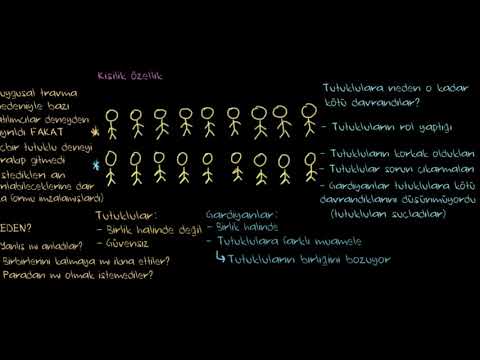 Kişilik Özellik
uygusal travma
edeniyle bazı
atılımcılar deneyden
yrıldı FAKAT
içbir tutuklu deneyi
ırakıp gitmedi
stedikleri an
nılabileceklerine dair
a formu imzalamışlardı)
EDEN?
Yanlış mı anladılar?
Birbirlerini kalmaya mı ikna ettiler?
Paradan mı olmak istemediler?
Tutuklular:
- Birlik halinde değil
- Güvensiz
Gardiyanlar:
- Birlik halinde
- Tutuklulara farklı muamele
Tutukluların birliğini bozuyor
Tutuklulara neden o kadar
kötü davrandılar?
- Tutukluların rol yaptığı
- Tutukluların korkak oldukları
- Tutuklular sorun çıkarmaları
- Gardiyanlar tutuklulara kötü
davrandıklarını düşünmüyordu
(tutukluları suçladılar)